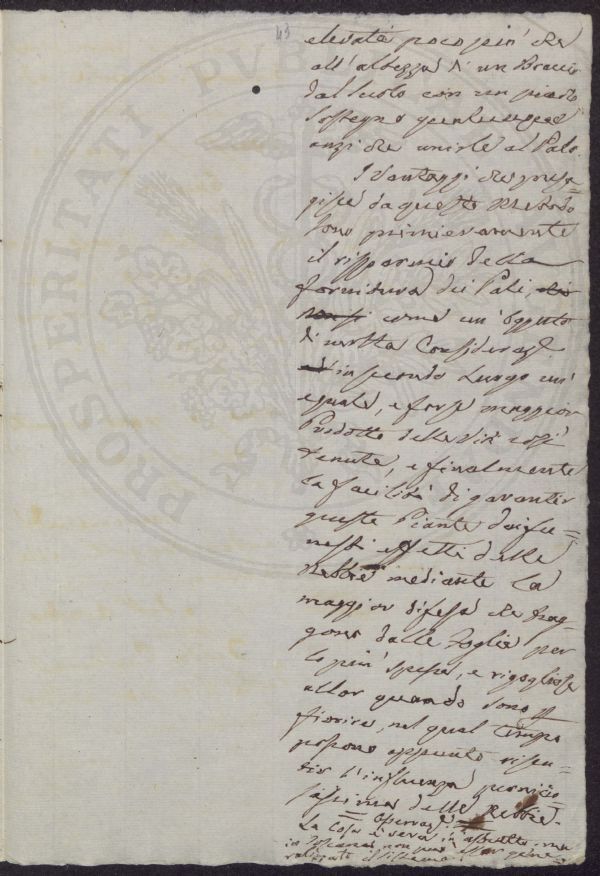 43
elevata poco più che
all'altezza d'un Braccio
dal suolo con un piccolo
sostegno qualunque
anzi che unirle al Palo.
I Vantaggi che presa=
gisce da questo Metodo
sono primieramente
il risparmio della
fornitura dei Pali,
come un'oggetto
di molta Consideraz.e
in secondo luogo un'
eguale, e forse maggior
Prodotto delle Viti così
tenute, e finalmente
la facilità di garantir
queste Piante dai fu=
nesti effetti delle
Nebbie mediante la
maggior difesa che trag=
gono dalle Foglie per
lo più spesse, e rigogliose
allor quando sono p
fiorire, nel qual tempo
possono appunto risen=
tir l'influenza pernicio=
sissima delle Nebbie.
Osservaz.e
La Cosa è vera in astratto, ma
in Toscana non può esser gene=
ralizzato il sistema.
PROSPERITATI PVB